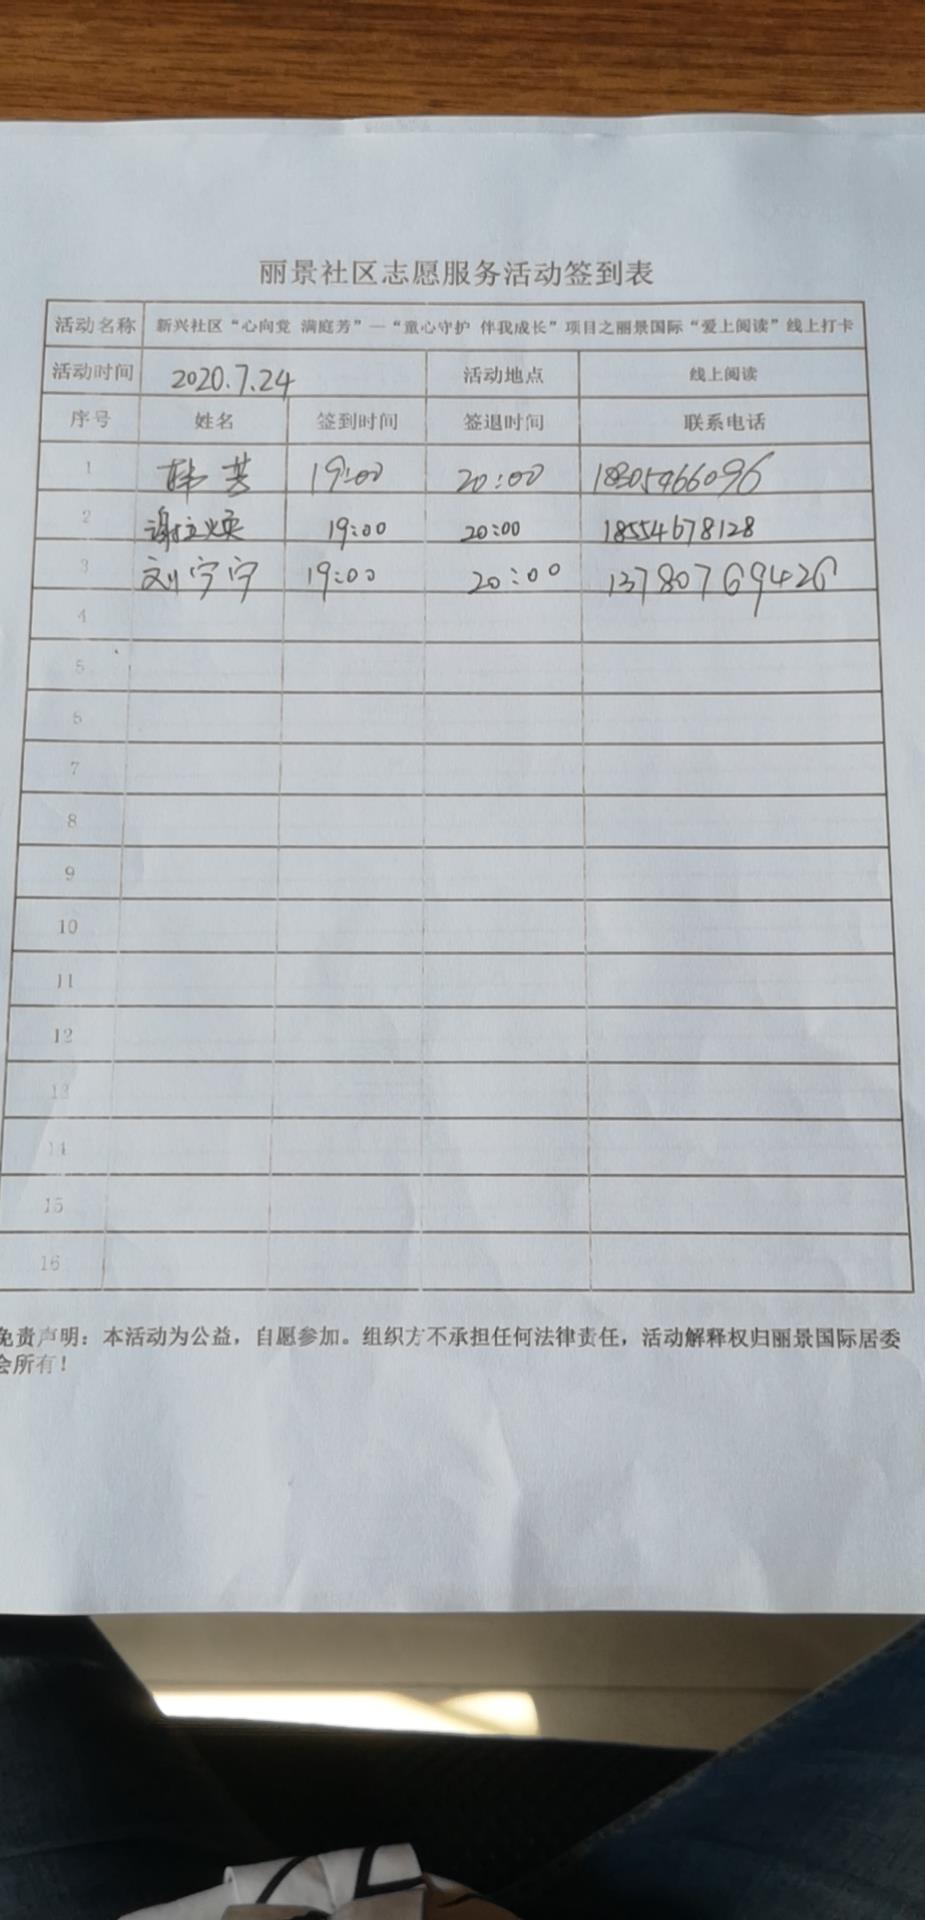 丽景社区志愿服务活动签到表
活动名称 新兴社区“心向党 满庭芳”—“童心守护 伴我成长”项目之丽景国际“爱上阅读”线上打卡
活动时间 2020.7.24 活动地点 线上阅读
序号 姓名 签到时间 签退时间 联系电话
1 韩芸 19:00 20:00 18305466096
2 谢立焕 19:00 20:00 18554678128
3 刘宁宁 19:00 20:00 13780769426
4
5
6
7
8
9
10
11
12
13
14
15
16
免责声明：本活动为公益，自愿参加。组织方不承担任何法律责任，活动解释权归丽景国际居委
会所有！